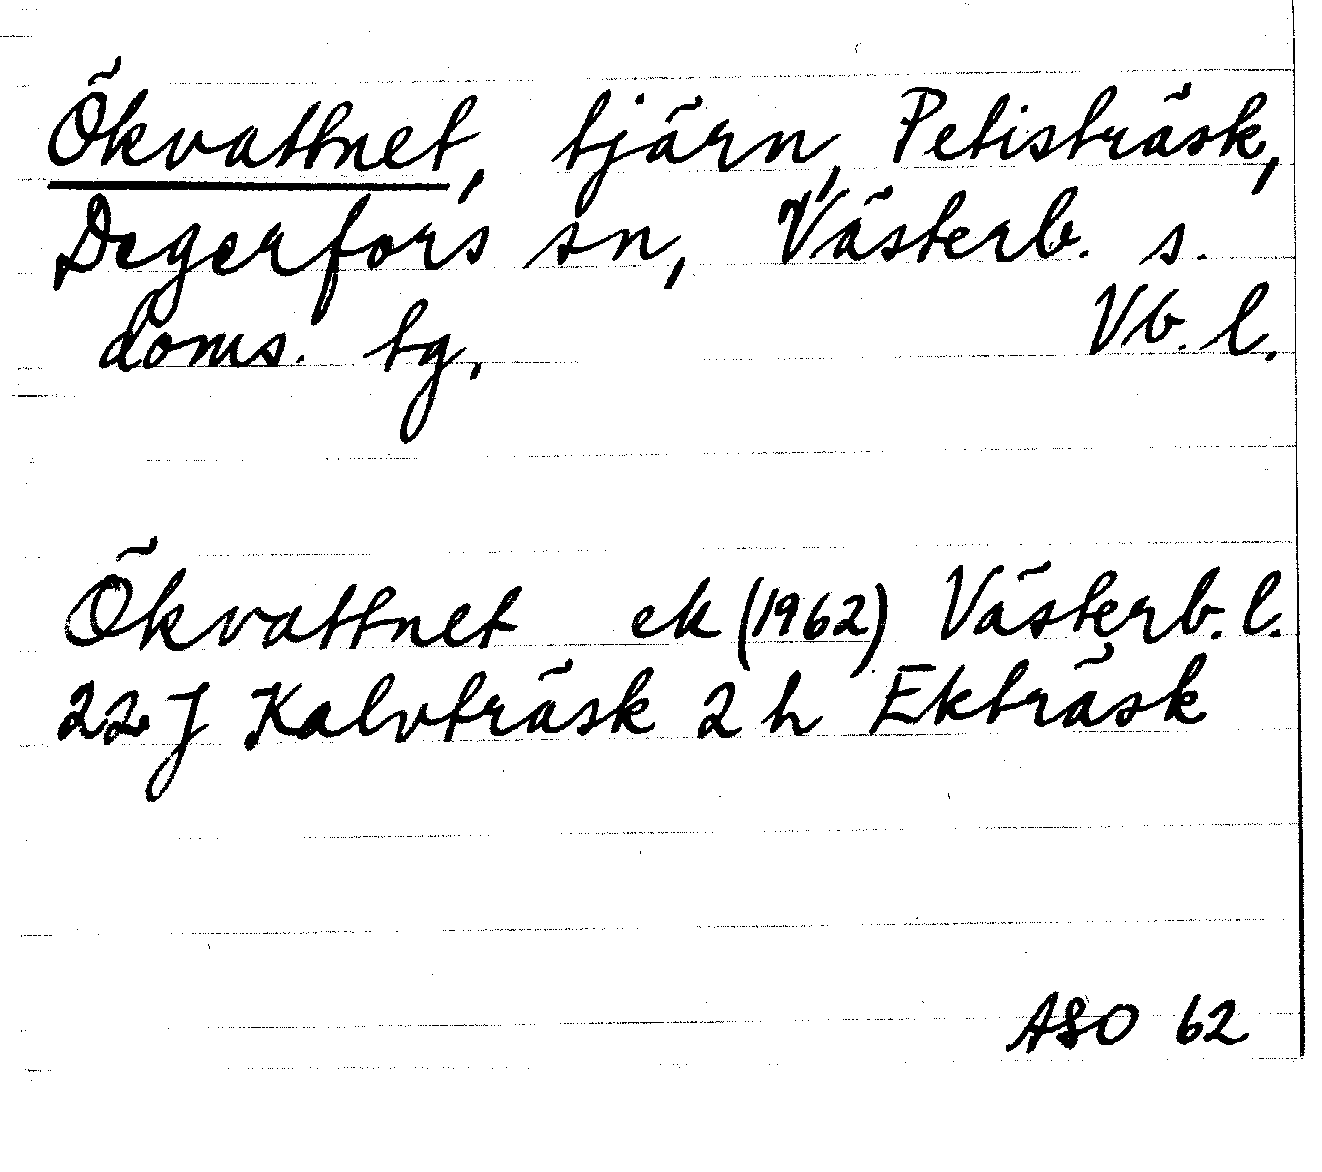 Ökvattnet, tjärn, Petisträsk,
Degerfors sn, Västerb. s.
doms. tg. Vb. l.
Ökvattnet ek (1962) Västerb. l.
22 J Kalvträsk 2 h Ekträsk
ASO 62